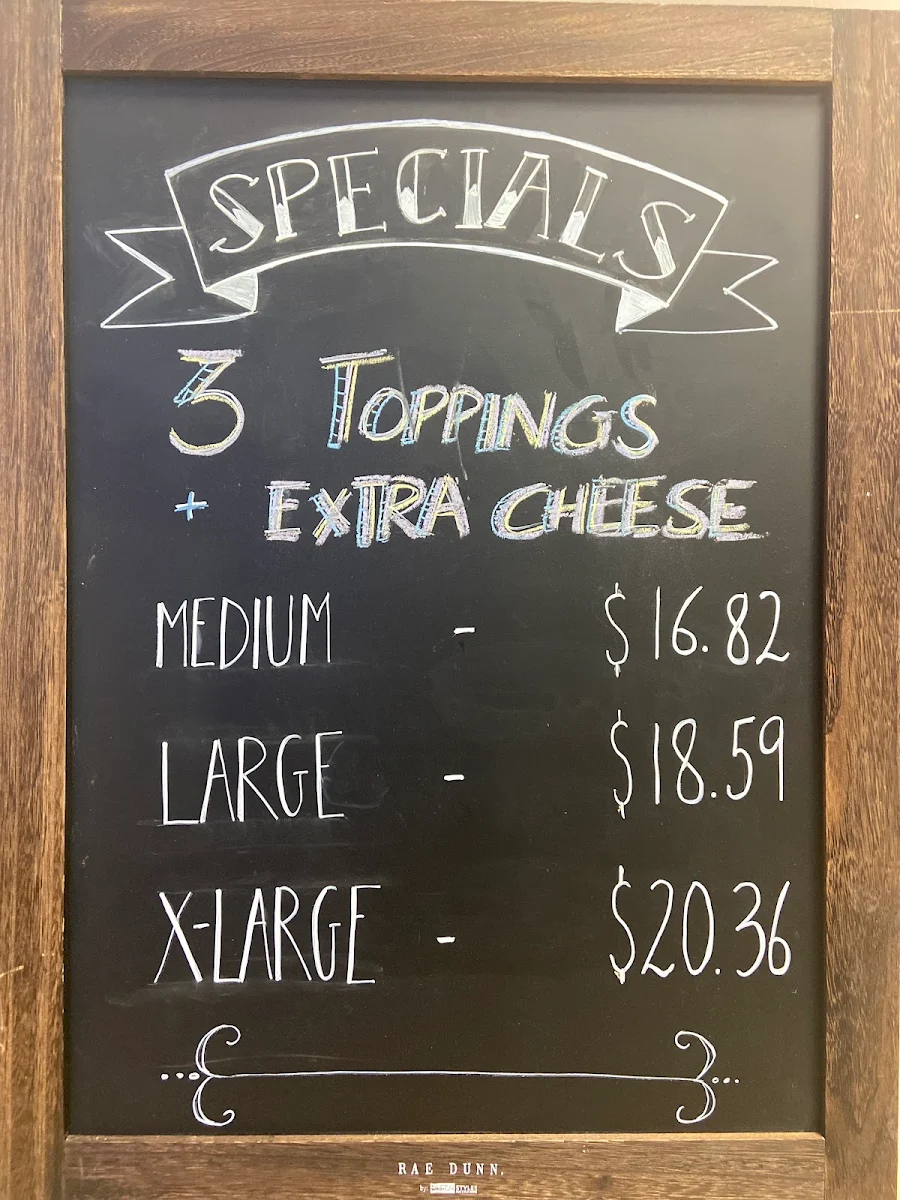 SPECIALS
3 TOPPINGS
+ EXTRA CHEESE
MEDIUM - $16.82
LARGE - $18.59
X-LARGE - $20.36
RAE DUNN.
by: STYLES